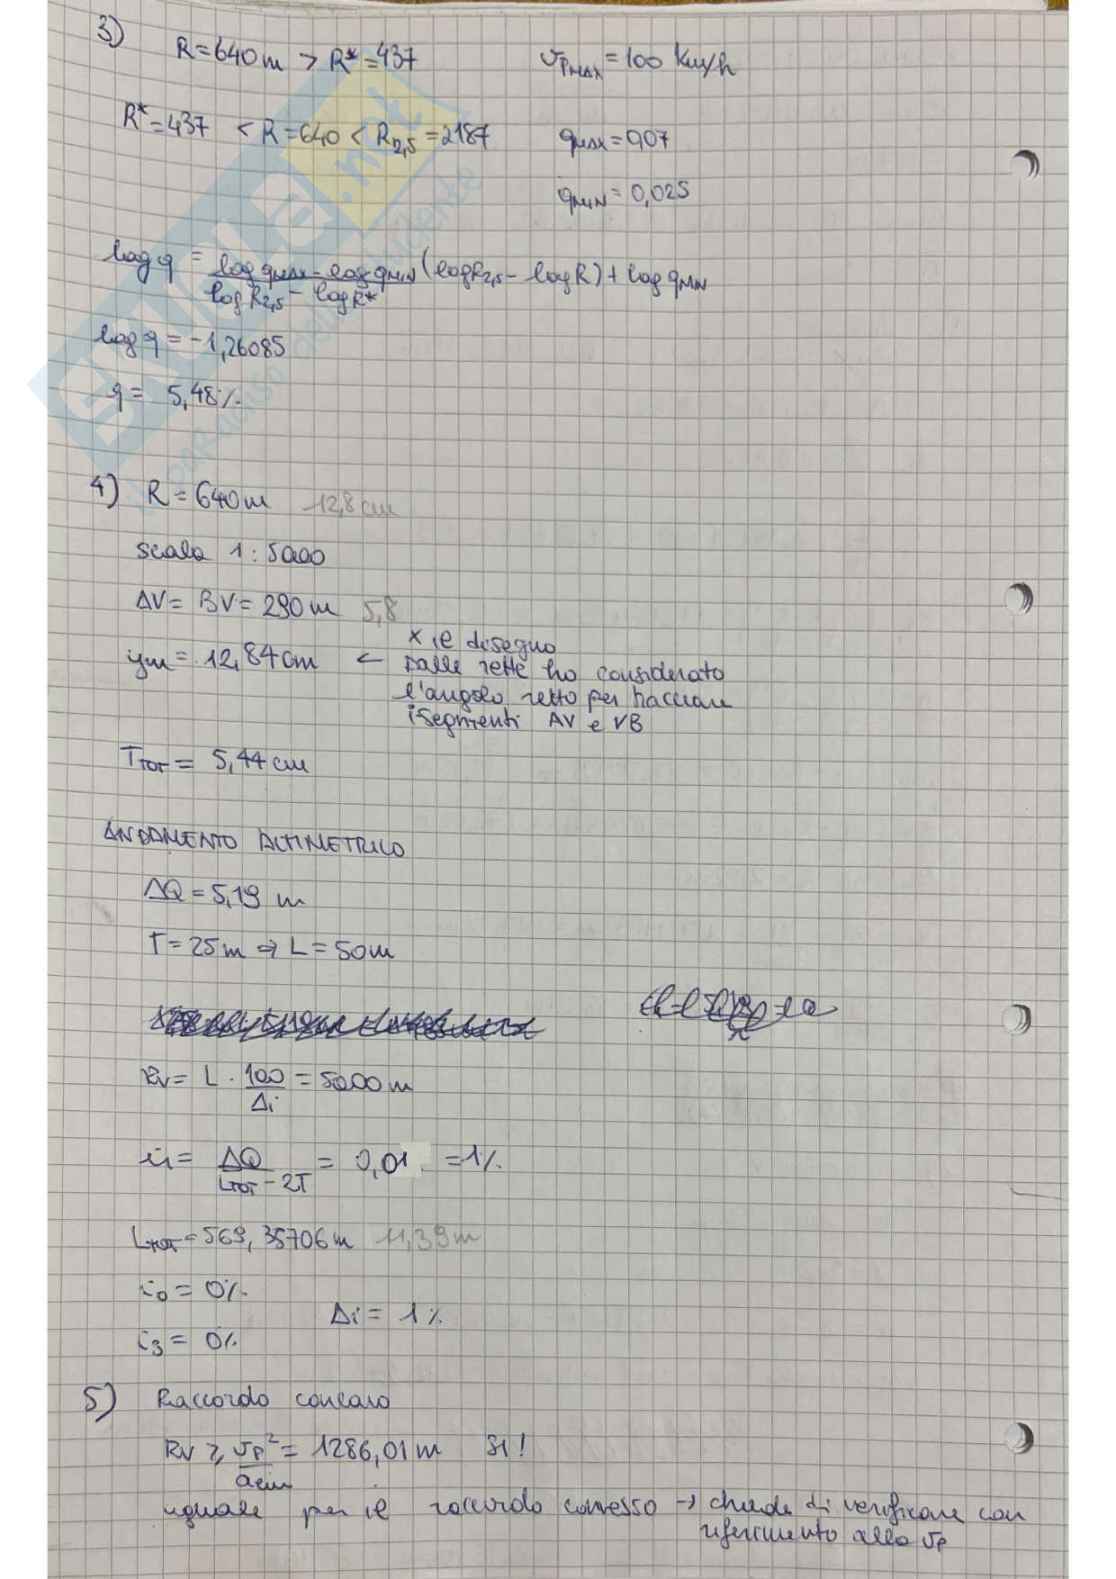 3) R = 640 m > R* = 437 vPMAX = 100 km/h
R* = 437 < R = 640 < R2,5 = 2187 qMAX = 0,07
qMIN = 0,025
log q = (log qMAX - log qMIN)/(log R2,5 - log R*) (log R2,5 - log R) + log qMIN
log q = -1,26085
q = 5,48%
4) R = 640 m 12,8 cm
scala 1 : 5000
AV = BV = 290 m 5,8
ym = 12,84 cm ← x il disegno
dalle rette ho considerato
l'angolo retto per tracciare
i segmenti AV e VB
TTOT = 5,44 cm
ANDAMENTO ALTIMETRICO
ΔQ = 5,19 m
T = 25 m ⇒ L = 50 m
Rv = L · 100/Δi = 5000 m
i1 = ΔQ/(LTOT - 2T) = 0,01 = 1%
LTOT = 569,35706 m 11,39 m
i0 = 0%
Δi = 1%
i3 = 0%
5) Raccordo concavo
Rv ≥ vP²/acen = 1286,01 m SI!
uguale per il raccordo convesso → chiede di verificare con
riferimento alla vP